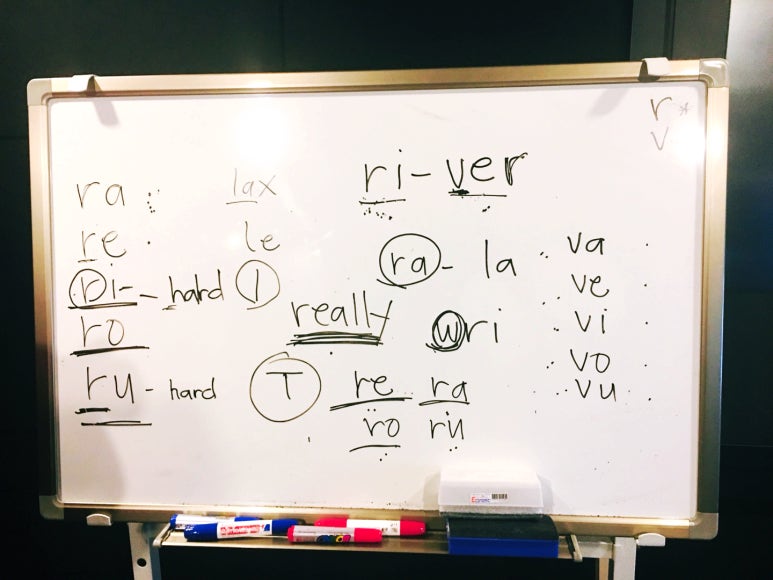 r*
v
ri-ver
ra : lax
re . le
ri- - hard l
ro
ru - hard
ra - la
really
wri
T
re ra
ro ru
va
ve
vi
vo
vu